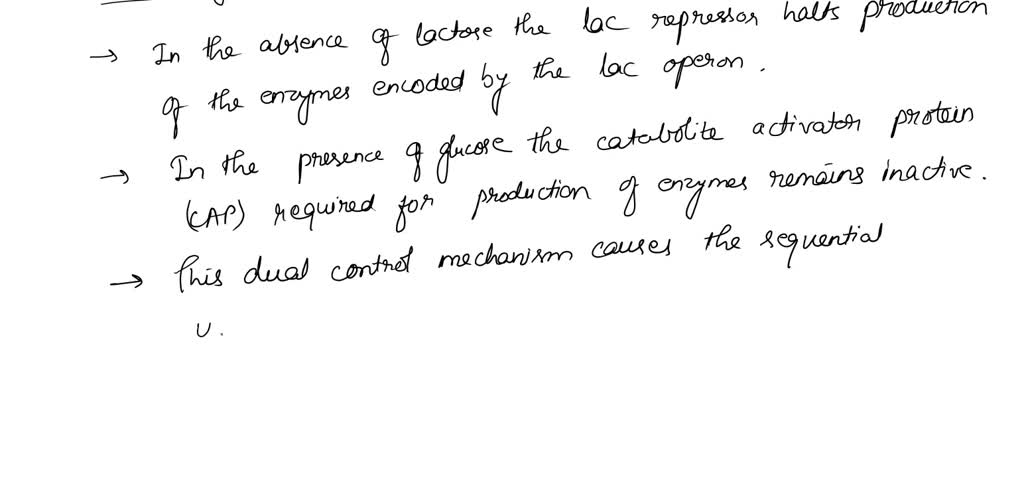 → In the absence of lactose the lac repressor halts production
of the enzymes encoded by the lac operon.
→ In the presence of glucose the catabolite activator protein
(CAP) required for production of enzymes remains inactive.
→ This dual control mechanism causes the sequential
u.